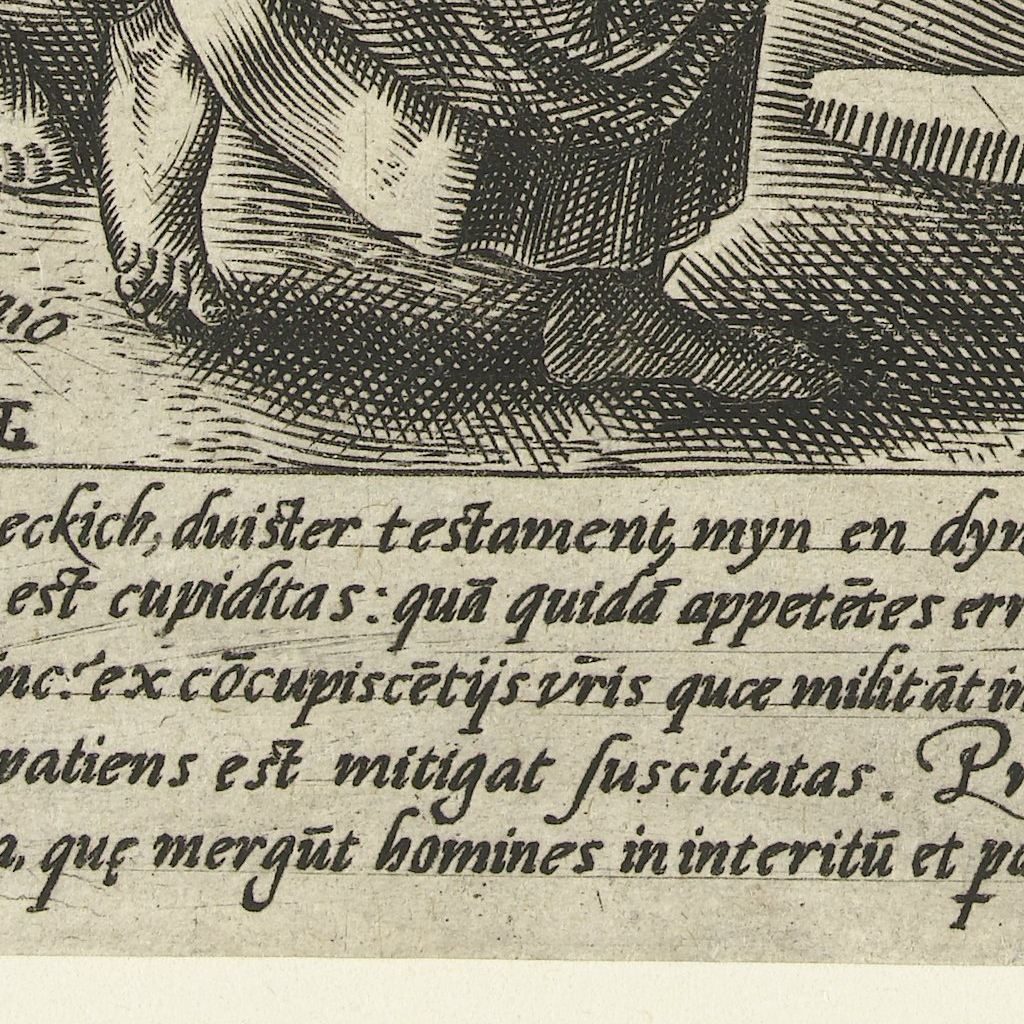 nio
eckich, duister testament, myn en dyn
est cupiditas: quā quidā appetētes err
inc? ex cōcupiscētijs vr̄is quæ militāt in
patiens est mitigat suscitatas. Pr
a, quę mergūt homines in interitū et p